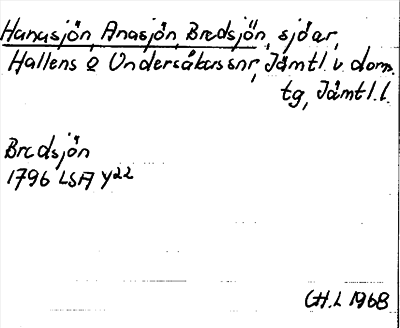 Hanasjön, Anasjön, Bredsjön, sjöar,
Hallens o Undersåkers snr, Jämtl. v. doms.
tg, Jämtl. l.
Bredsjön
1796 LSA Y22
CH.L 1968